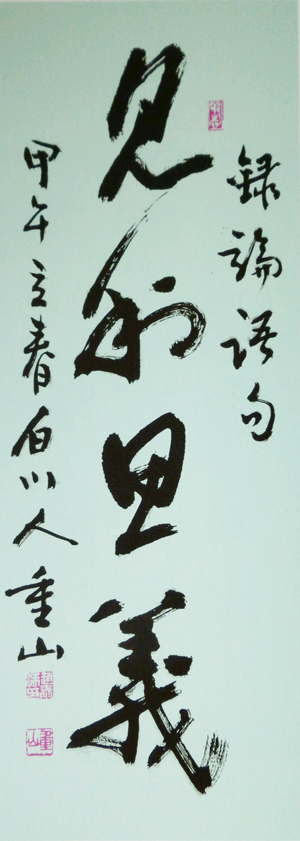 録論語句
見利思義
甲午立春白川人重山